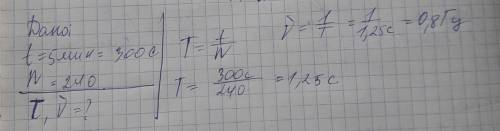 Дано:
t = 5мин = 300с
N = 240
T, ν̄ = ?
T = t/N
T = 300с/240 = 1,25с
ν̄ = 1/T = 1/1,25с = 0,8Гц